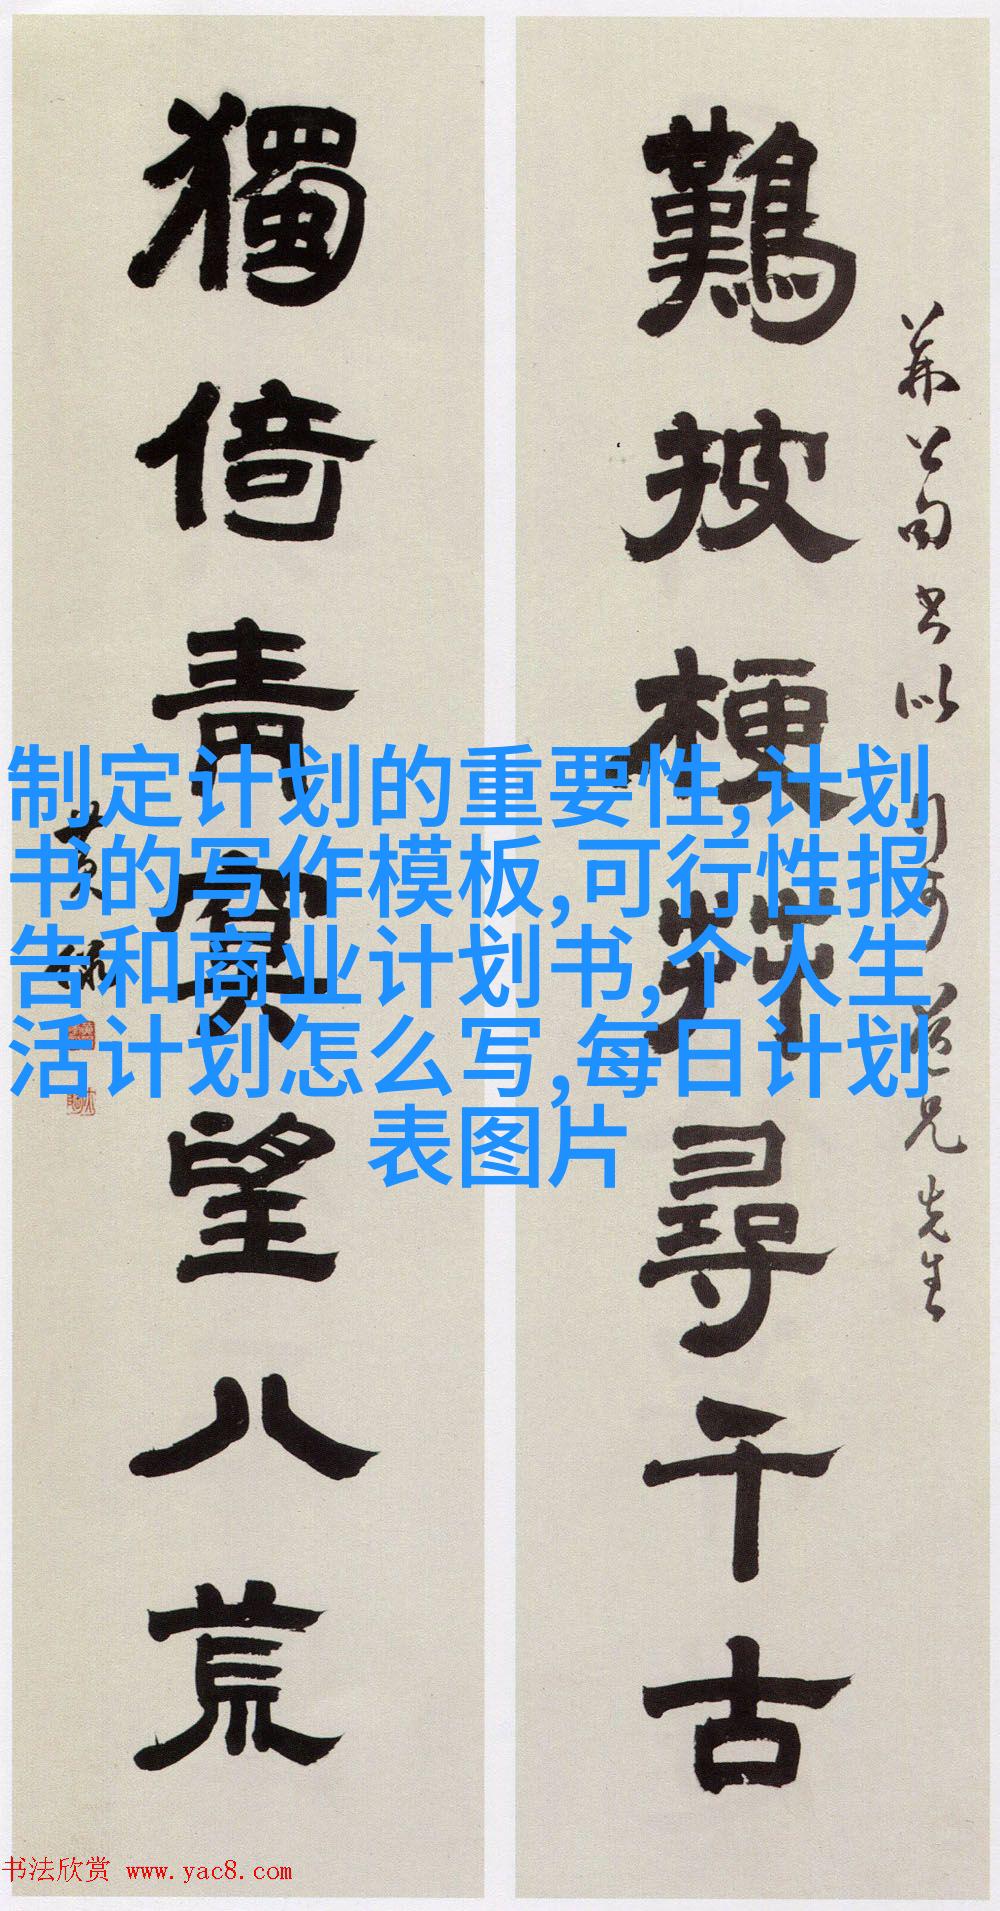 披梗尋千古
獨倚青冥望八荒
兄先生
制定计划的重要性,计划
书的写作模板,可行性报
告和商业计划书,个人生
活计划怎么写,每日计划
表图片
书法欣赏 www.yac8.com